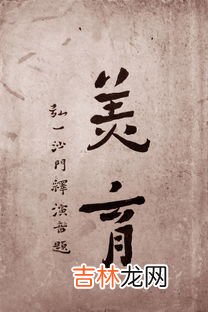 美育
弘一沙門釋演音題
吉林龙网